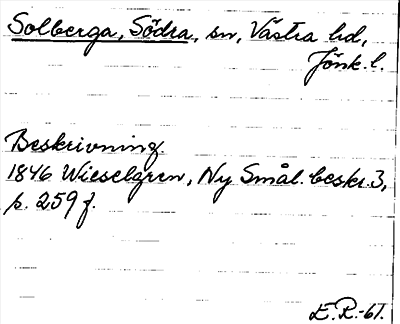 Solberga, Södra, sn, Västra hd,
Jönk. l.
Beskrivning.
1846 Wieselgren, Ny Smål. beskr. 3,
p. 259 f.
E.R.-61.